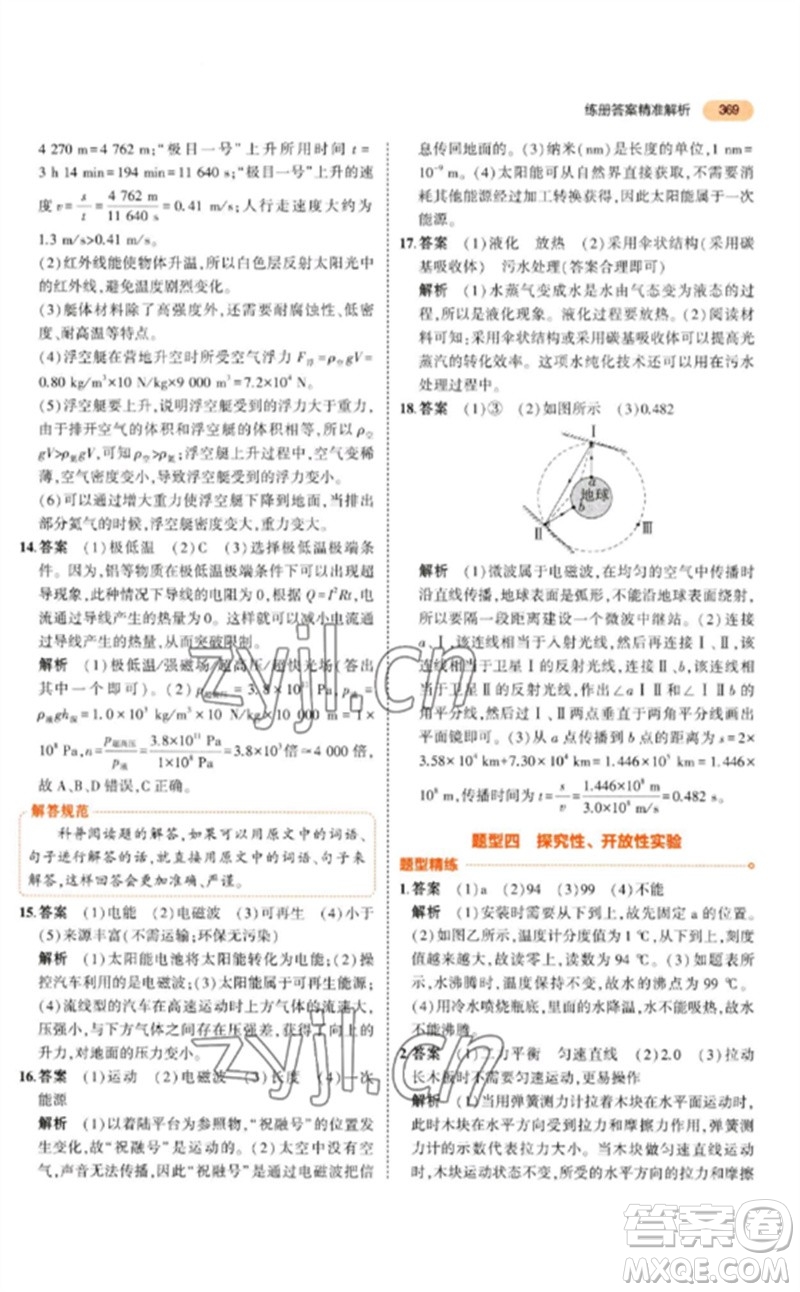 练册答案精准解析 369
4 270 m=4 762 m;“极目一号”上升所用时间 t=
3 h 14 min=194 min=11 640 s;“极目一号”上升的速
度 v=s/t=4 762 m/11 640 s=0.41 m/s;人行走速度大约为
1.3 m/s>0.41 m/s。
(2)红外线能使物体升温,所以白色层反射太阳光中
的红外线,避免温度剧烈变化。
(3)艇体材料除了高强度外,还需要耐腐蚀性、低密
度、耐高温等特点。
(4)浮空艇在营地升空时所受空气浮力 F浮=ρ空gV=
0.80 kg/m³×10 N/kg×9 000 m³=7.2×10⁴ N。
(5)浮空艇要上升,说明浮空艇受到的浮力大于重力,
由于排开空气的体积和浮空艇的体积相等,所以 ρ空
gV>ρ氦gV,可知 ρ空>ρ氦;浮空艇上升过程中,空气变稀
薄,空气密度变小,导致浮空艇受到的浮力变小。
(6)可以通过增大重力使浮空艇下降到地面,当排出
部分氦气的时候,浮空艇密度变大,重力变大。
14.答案 (1)极低温 (2)C (3)选择极低温极端条
件。因为,铝等物质在极低温极端条件下可以出现超
导现象,此种情况下导线的电阻为0,根据 Q=I²Rt,电
流通过导线产生的热量为0。这样就可以减小电流通
过导线产生的热量,从而突破限制。
解析 (1)极低温/强磁场/超高压/超快光场(答出
其中一个即可)。(2)p超高压=3.8×10¹¹ Pa,p液=
ρ液gh深=1.0×10³ kg/m³×10 N/kg×10 000 m=1×
10⁸ Pa,n=p超高压/p液=3.8×10¹¹ Pa/1×10⁸ Pa=3.8×10³倍≈4 000 倍,
故 A、B、D 错误,C 正确。
解答规范
科普阅读题的解答,如果可以用原文中的词语、
句子进行解答的话,就直接用原文中的词语、句子来
解答,这样回答会更加准确、严谨。
15.答案 (1)电能 (2)电磁波 (3)可再生 (4)小于
(5)来源丰富(不需运输;环保无污染)
解析 (1)太阳能电池将太阳能转化为电能。(2)操
控汽车利用的是电磁波。(3)太阳能是可再生能源。
(4)流线型的汽车在高速运动时上方气体的流速大,
压强小,与下方气体存在压强差,获得了向上的
升力,对地面的压力变小。
16.答案 (1)运动 (2)电磁波 (3)长度 (4)一次
能源
解析 (1)以着陆平台为参照物,“祝融号”的位置发
生变化,故“祝融号”是运动的。(2)太空中没有空
气,声音无法传播,因此“祝融号”是通过电磁波把信
息传回地面的。(3)纳米(nm)是长度的单位,1 nm=
10⁻⁹ m。(4)太阳能可从自然界直接获得,不需要消
耗其他能源经过加工转换获得,因此太阳能属于一次
能源。
17.答案 (1)液化 放热 (2)采用伞状结构(采用碳
基吸收体) 污水处理(答案合理即可)
解析 (1)水蒸气变成水是水由气态变为液态的过
程,所以是液化现象。液化要放热。(2)阅读材料
可知:采用伞状结构或采用碳基吸收体可以提高光
蒸汽的转化效率。这项水纯化技术还可以用在污水
处理过程中。
18.答案 (1)③ (2)如图所示 (3)0.482
Ⅰ
a
地球
b
Ⅱ
Ⅲ
解析 (1)微波属于电磁波,在均匀的空气中传播时
沿直线传播,地球表面是弧形,不能沿地球表面传播,
所以要隔一段距离建设一个微波中继站。(2)连接
a、Ⅰ,该连线相当于入射光线,连接Ⅰ、Ⅱ,该连线相
当于卫星Ⅰ的反射光线,连接Ⅱ、b,该连线
相当于卫星Ⅱ的反射光线,作出∠aⅠⅡ和∠ⅠⅡb 的
角平分线,然后过Ⅰ、Ⅱ点垂直于两角平分线画出
平面镜即可。(3)从a点到b点的距离为 s=2×
3.58×10⁴ km+7.30×10⁴ km=1.446×10⁵ km=1.446×
10⁸ m,传播时间为 t=s/v=1.446×10⁸ m/3.0×10⁸ m/s=0.482 s。
题型四 探究性、开放性实验
题型精练
1.答案 (1)a (2)94 (3)99 (4)不能
解析 (1)安装时应从下到上,故先固定 a 的位置。
(2)如图乙所示,温度计分度值为 1 ℃,从下到上,示
数值越来越大,则为 94 ℃。(3)由表格数据可
知,水沸腾时,温度保持不变,故水的沸点为 99 ℃。
(4)用冷水喷烧瓶底,里面的水降温,水不能吸热,故水
不能沸腾。
2.答案 (1)二力平衡 匀速直线 (2)2.0 (3)拉动
长木板时不需要匀速运动,更易操作
解析 (1)当用弹簧测力计拉着木块在水平面运动
时,木块在水平方向受到拉力和摩擦力作用,弹簧测力
计的示数代表拉力大小。当木块做匀速直线运动时,
木块运动状态不变,所受的水平方向的拉力和摩擦
zyjl.cn
zyjl.cn
答案圈
MXQE.COM